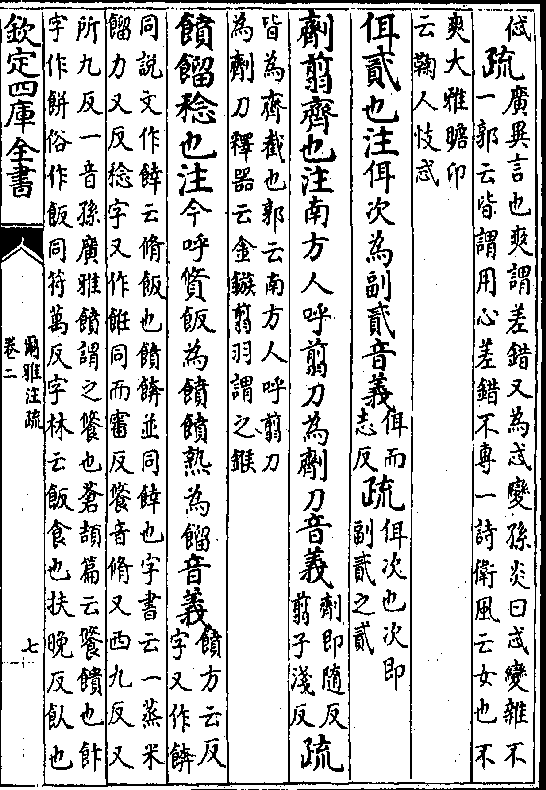 忒疏廣異言也爽謂差錯又為忒變孫炎曰忒變雜不
一郭云皆謂用心差錯不專一詩衛風云女也不
爽大雅瞻卬
云鞫人忮忒
佴貳也注佴次為副貳音義佴而志反疏佴次也次即副貳之貳
劑翦齊也注南方人呼翦刀為劑刀音義劑即隨反翦子淺反疏
皆為齊截也郭云南方人呼翦刀
為劑刀釋器云金鏃翦羽謂之鍭
饙餾稔也注今呼䬳飯為饙饙熟為餾音義饙方云反字又作餴
同說文作䭀云脩飯也饙餴並同䭀也字書云一蒸米
餾力又反稔字又作餁同而審反饔音脩又西九反又
所九反一音孫廣雅饙謂之饔也蒼頡篇云饔饙也飵
字作餅俗作飯同符萬反字林云飯食也扶晚反飤也
欽定四庫全書
爾雅注疏
卷二
七